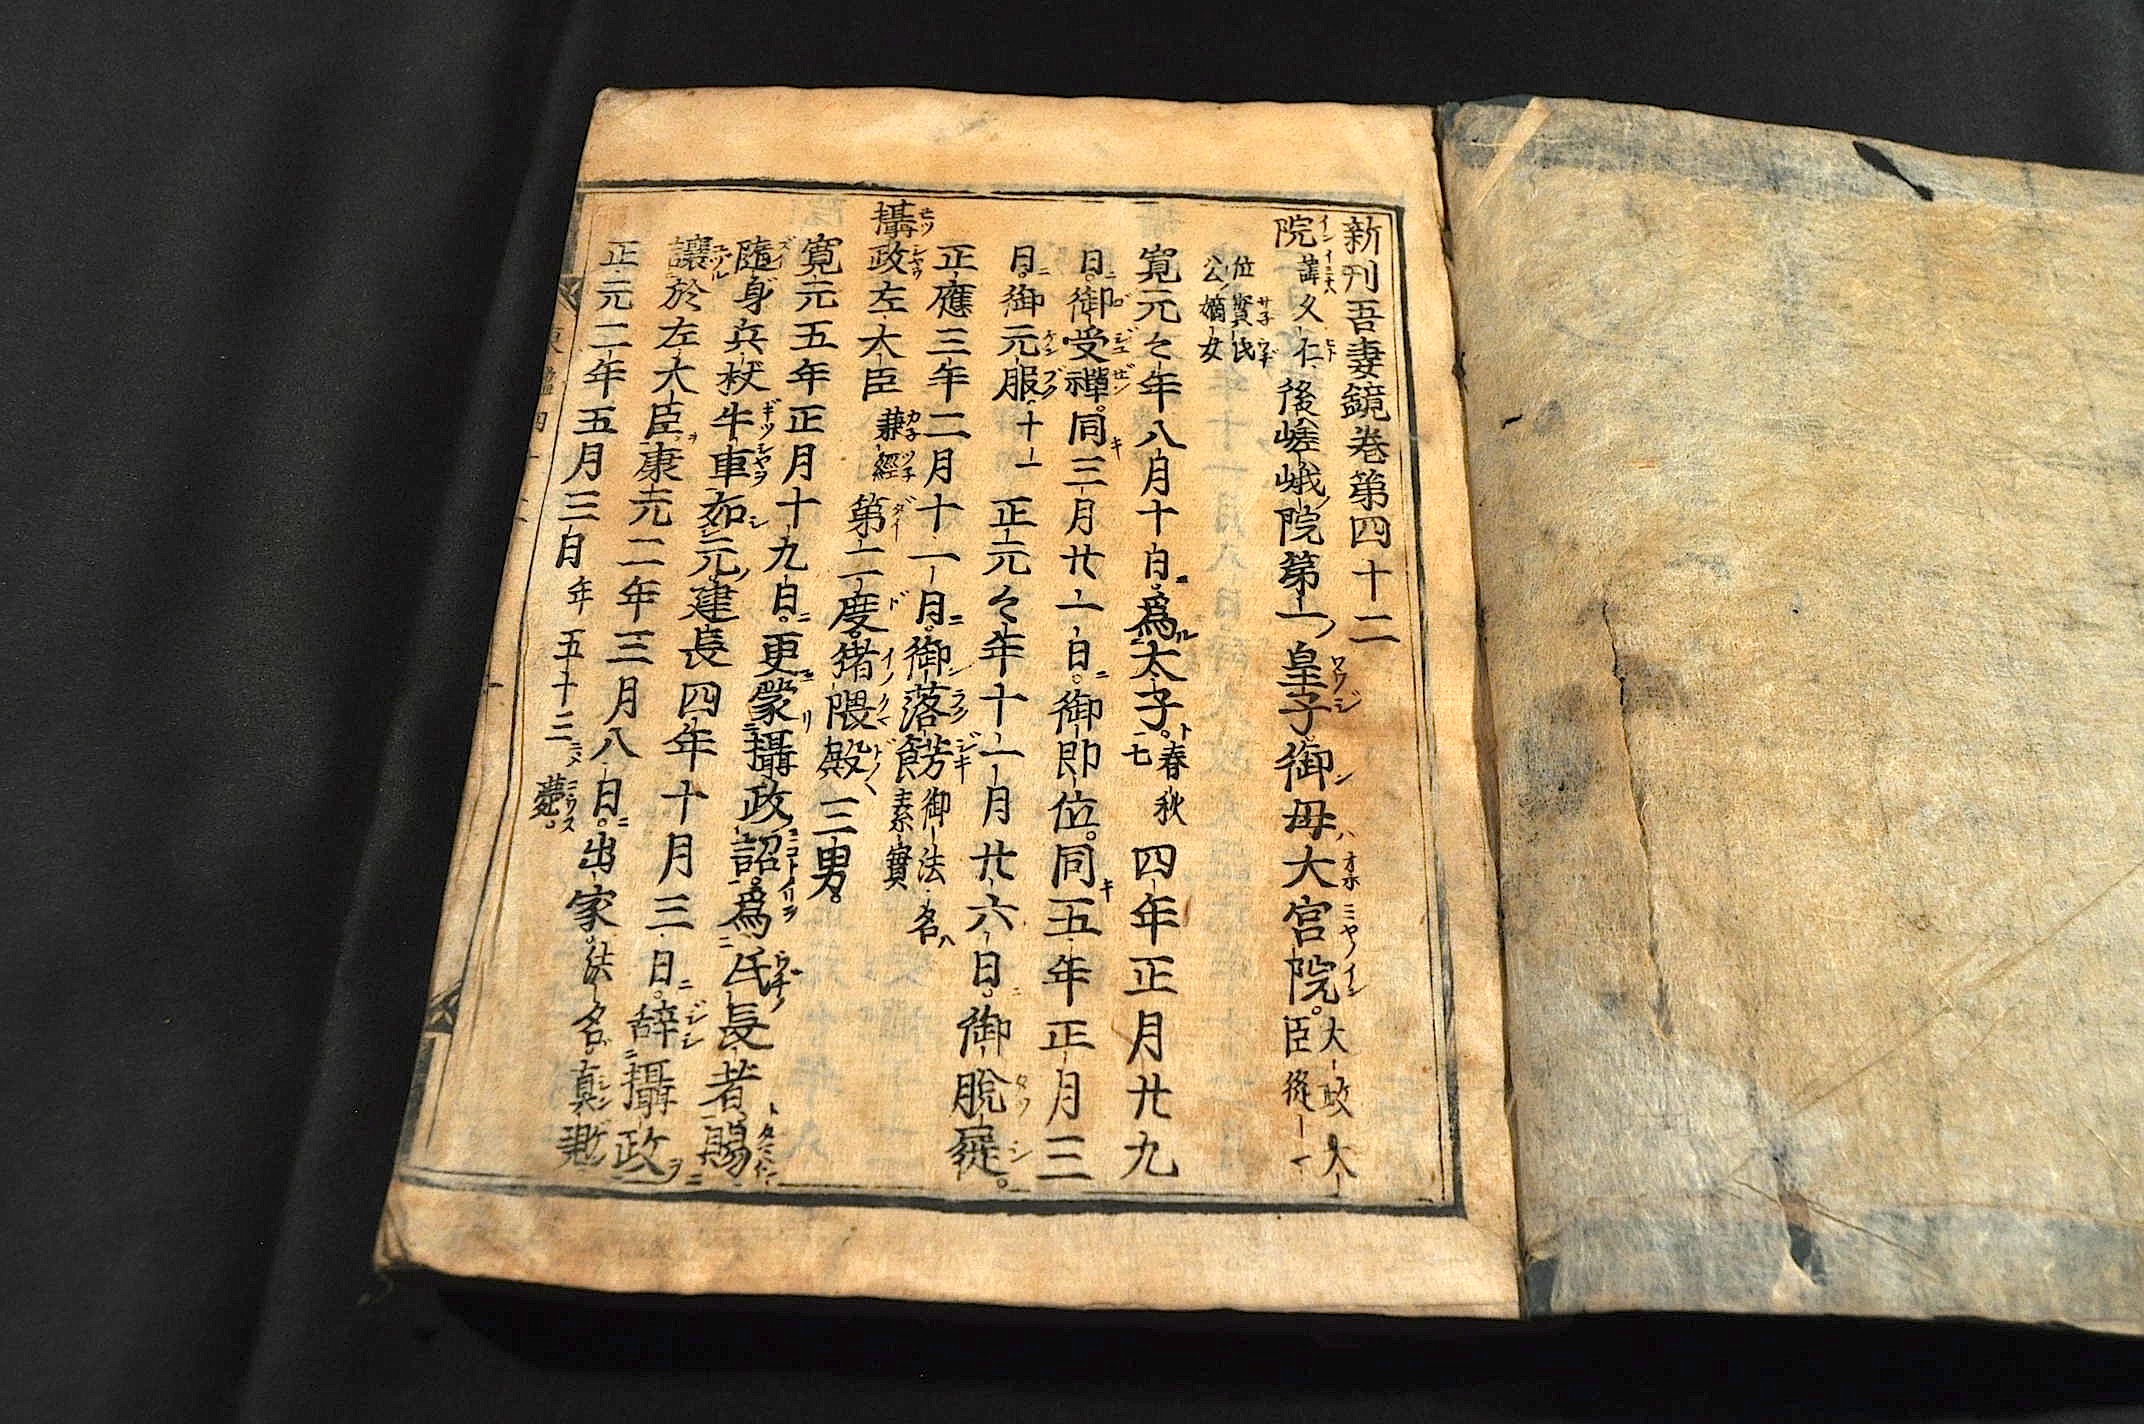 新刊吾妻鏡巻第四十二
院諱久仁後嵯峨院第一皇子御母大宮院大政大臣従一
位實氏公嫡女
寛元々年八月十日為太子春秋七四年正月廿九
日御受禪同三月廿一日御即位同五年正月三
日御元服十一正元々年十一月廿六日御脱屣
正應三年二月十一日御落餝御法名素實
攝政左大臣兼經第二度猪隈殿三男
寛元五年正月十九日更蒙攝政詔為氏長者賜
隨身兵杖牛車如元建長四年十月三日辞攝政
讓於左大臣康元二年三月八日出家法名真
正元二年五月三日年五十二薨